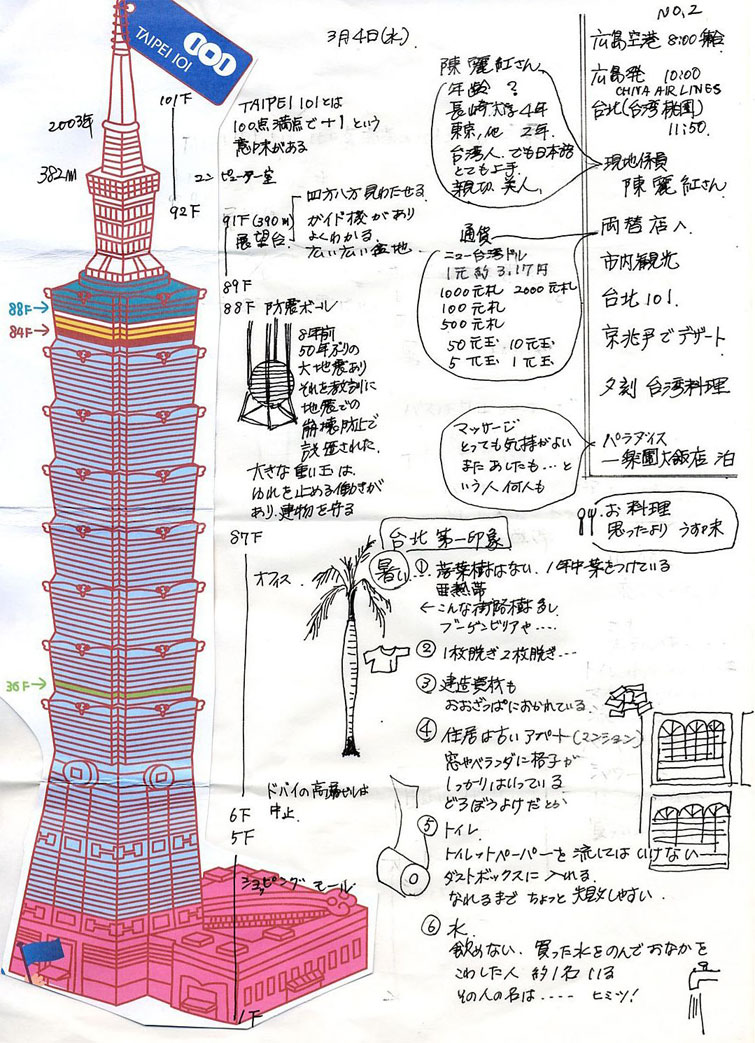 NO.2
3月4日(水)
TAIPEI 101
101F
2003年
382m
コンピューター室
92F
TAIPEI 101とは
100点満点で+1という
意味がある
91F(390m)
展望台
四方八方見わたせる
ガイド機があり
よくわかる
広い広い
89F
88F 防震ボール
88F→
84F→
36F→
8年前
50年ぶりの
大地震あり
それを教訓に
地震での
崩壊防止で
設置された
大きな重い玉は、
ゆれを止める働きが
あり、建物を守る
87F
オフィス
ドバイの高層ビルは
中止
6F
5F
ショッピング モール
1F
陳麗紅さん
年齢 ?
長崎大学4年
東京,他 2年.
台湾人.でも日本語
とても上手
親切.美人.
通貨
ニュー台湾ドル
1元 約 3.17円
1000元札 2000元札
100元札
500元札
50元玉 10元玉
5元玉 1元玉
マッサージ
とっても気持がよい
またあしたも…と
いう人 何人も
広島空港 8:00集合
広島発 10:00
CHINA AIRLINES
台北(台湾桃園)
11:50.
現地係員
陳麗紅さん
両替店へ
市内観光
台北101.
京兆尹でデザート
夕刻 台湾料理
パラダイス
一楽園大飯店 泊
お料理
思ったより うす味
台北 第一印象
暑い…
① 落葉樹はない. 1年中葉をつけている
亜熱帯
←こんな街路樹多し
ブーゲンビリアや‥‥
② 1枚脱ぎ2枚脱ぎ…
③ 建造資材も
おおざっぱにおかれている.
④ 住居は古いアパート(マンション)
窓やベランダに格子が
しっかりはいっている
どろぼうよけだとか
⑤ トイレ
トイレットペーパーを流してはいけない
ダストボックスに入れる.
なれるまで ちょっと失敗しやすい.
⑥ 水.
飲めない. 買った水をのんでおなかを
こわした人 約1名いる
その人の名は‥‥ ヒミツ!